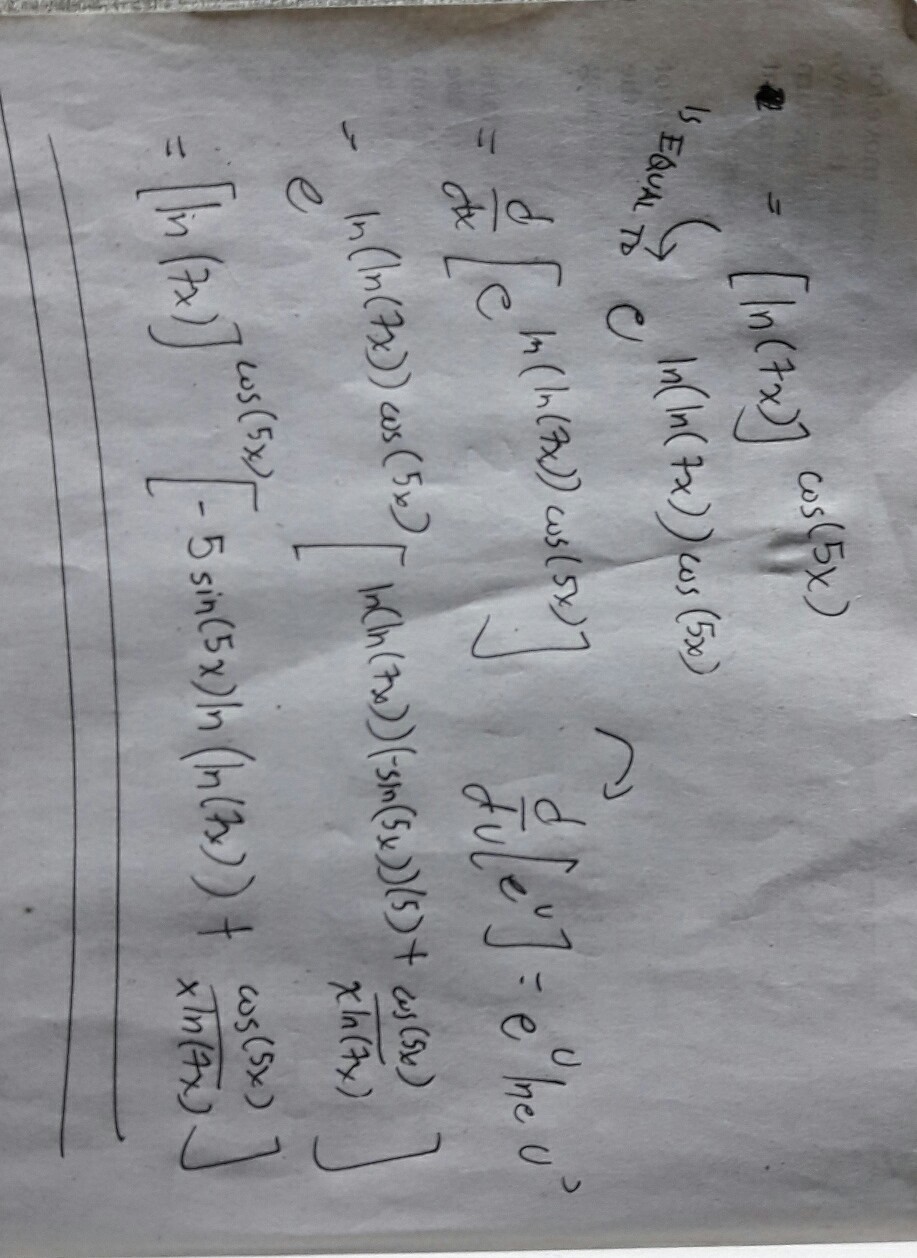 = [ln(7x)]^cos(5x)
IS EQUAL TO e^ln(ln(7x))cos(5x)
= d/dx [e^ln(ln(7x))cos(5x)] d/du[e^u] = e^u ln e u'
= e^ln(ln(7x))cos(5x) [ln(ln(7x))(-sin(5x))(5) + cos(5x)/xln(7x)]
= [ln(7x)]^cos(5x) [-5sin(5x)ln(ln(7x)) + cos(5x)/xln(7x)]